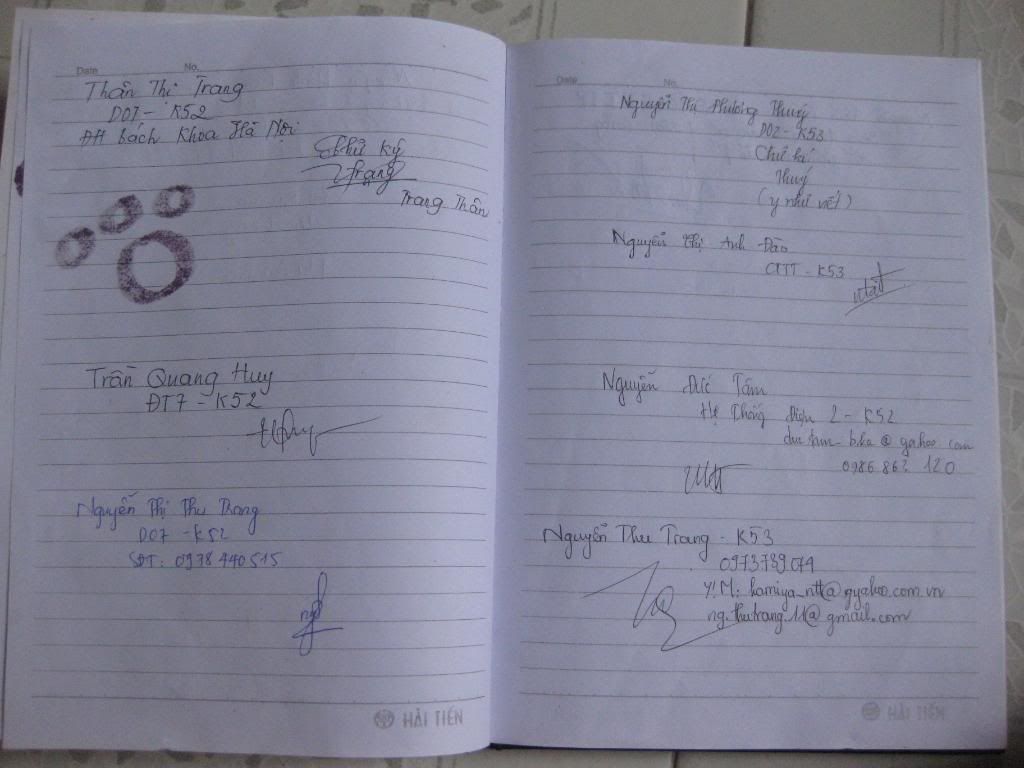 Date No.
Thân Thị Trang
DO7 - K52
ĐH Bách Khoa Hà Nội
Chữ ký
Trang
Trang Thân
Trần Quang Huy
ĐT7 - K52
Huy
Nguyễn Thị Thu Trang
DO7 - K52
SĐT: 0978 440515
HẢI TIẾN
Date No.
Nguyễn Thị Phương Thuý
DO2 - K53
Chữ kí
Thuý
(y như viết)
Nguyễn Thị Anh Đào
CTTT - K53
Nguyễn Đức Tâm
Hệ Thống Điện 2 - K52
bka @ yahoo.com
0986.862 120
Nguyễn Thu Trang - K53
0973739074
Y!M: kamiya_ntt@yahoo.com.vn
ng.thutrang.11@gmail.com
HẢI TIẾN